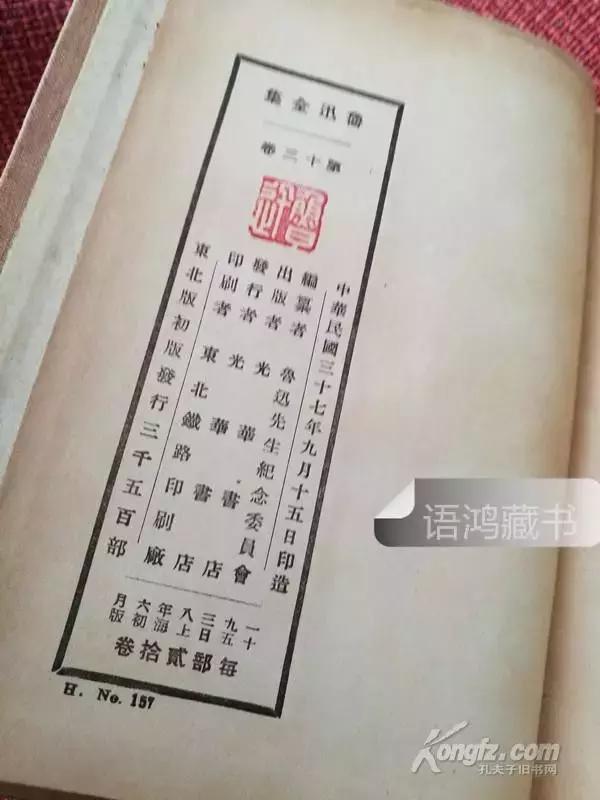 魯迅全集
第十卷
中華民國三十七年九月十五日印造
編纂者 魯迅先生紀念委員會
出版者 光華書店
發行者 光華書店
印刷者 東北鐵路印刷廠
東北版初版發行三千五百部
一九三八年六月
十五日上海初版
每部貳拾卷
H. No. 157
语鸿藏书
Kongfz.com
孔夫子旧书网